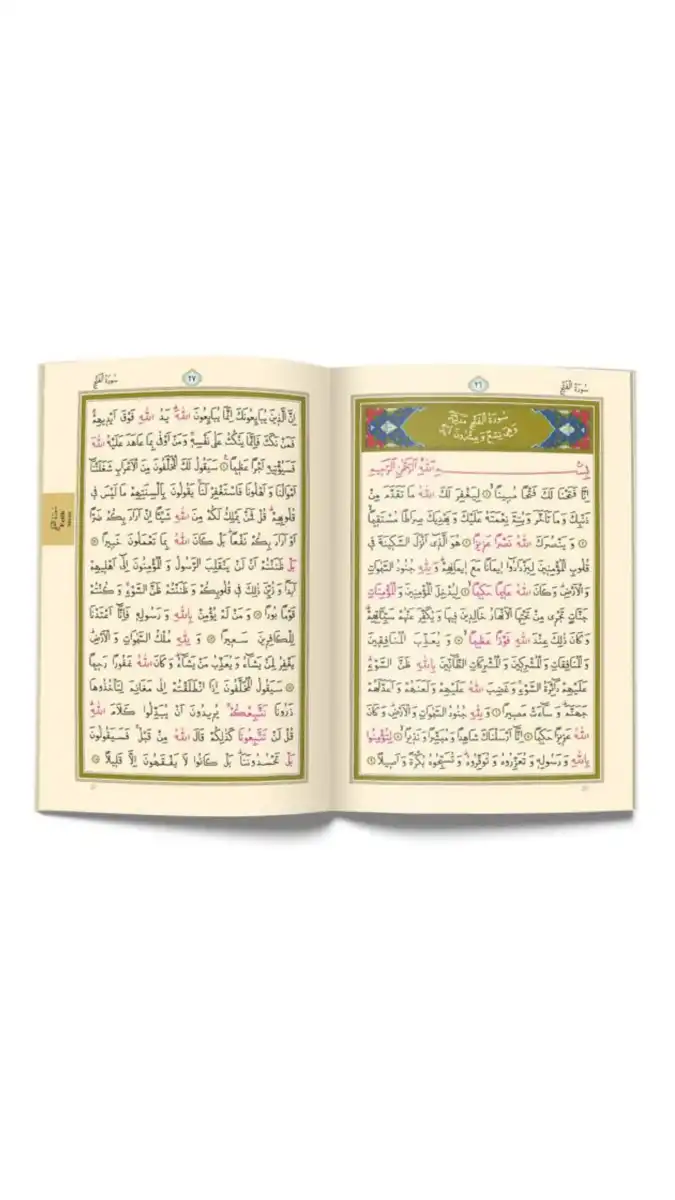 سُورَةُ الْفَتْحِ
٢٦
سُورَةُ الْفَتْحِ مَدَنِيَّةٌ
وَهِيَ تِسْعٌ وَعِشْرُونَ اٰيَةً
بِسْمِ اللهِ الرَّحْمٰنِ الرَّحِيمِ
اِنَّا فَتَحْنَا لَكَ فَتْحًا مُبِينًا ﴿١﴾ لِيَغْفِرَ لَكَ اللهُ مَا تَقَدَّمَ مِنْ
ذَنْبِكَ وَمَا تَاَخَّرَ وَيُتِمَّ نِعْمَتَهُ عَلَيْكَ وَيَهْدِيَكَ صِرَاطًا مُسْتَقِيمًا
﴿٢﴾ وَيَنْصُرَكَ اللهُ نَصْرًا عَزِيزًا ﴿٣﴾ هُوَ الَّذِى اَنْزَلَ السَّكِينَةَ فِى
قُلُوبِ الْمُؤْمِنِينَ لِيَزْدَادُوا اِيمَانًا مَعَ اِيمَانِهِمْ وَلِلّٰهِ جُنُودُ السَّمٰوَاتِ
وَالْاَرْضِ وَكَانَ اللهُ عَلِيمًا حَكِيمًا ﴿٤﴾ لِيُدْخِلَ الْمُؤْمِنِينَ وَالْمُؤْمِنَاتِ
جَنَّاتٍ تَجْرِى مِنْ تَحْتِهَا الْاَنْهَارُ خَالِدِينَ فِيهَا وَيُكَفِّرَ عَنْهُمْ سَيِّـَٔاتِهِمْ
وَكَانَ ذٰلِكَ عِنْدَ اللهِ فَوْزًا عَظِيمًا ﴿٥﴾ وَيُعَذِّبَ الْمُنَافِقِينَ
وَالْمُنَافِقَاتِ وَالْمُشْرِكِينَ وَالْمُشْرِكَاتِ الظَّانِّينَ بِاللهِ ظَنَّ السَّوْءِ
عَلَيْهِمْ دَائِرَةُ السَّوْءِ وَغَضِبَ اللهُ عَلَيْهِمْ وَلَعَنَهُمْ وَاَعَدَّ لَهُمْ
جَهَنَّمَ وَسَاءَتْ مَصِيرًا ﴿٦﴾ وَلِلّٰهِ جُنُودُ السَّمٰوَاتِ وَالْاَرْضِ وَكَانَ
اللهُ عَزِيزًا حَكِيمًا ﴿٧﴾ اِنَّا اَرْسَلْنَاكَ شَاهِدًا وَمُبَشِّرًا وَنَذِيرًا ﴿٨﴾ لِتُؤْمِنُوا
بِاللهِ وَرَسُولِهِ وَتُعَزِّرُوهُ وَتُوَقِّرُوهُ وَتُسَبِّحُوهُ بُكْرَةً وَاَصِيلًا ﴿٩﴾
٢٧
سُورَةُ الْفَتْحِ
اِنَّ الَّذِينَ يُبَايِعُونَكَ اِنَّمَا يُبَايِعُونَ اللهَ يَدُ اللهِ فَوْقَ اَيْدِيهِمْ
فَمَنْ نَكَثَ فَاِنَّمَا يَنْكُثُ عَلٰى نَفْسِهِ وَمَنْ اَوْفٰى بِمَا عَاهَدَ عَلَيْهُ اللهَ
فَسَيُؤْتِيهِ اَجْرًا عَظِيمًا ﴿١٠﴾ سَيَقُولُ لَكَ الْمُخَلَّفُونَ مِنَ الْاَعْرَابِ شَغَلَتْنَا
اَمْوَالُنَا وَاَهْلُونَا فَاسْتَغْفِرْ لَنَا يَقُولُونَ بِاَلْسِنَتِهِمْ مَا لَيْسَ فِى
قُلُوبِهِمْ قُلْ فَمَنْ يَمْلِكُ لَكُمْ مِنَ اللهِ شَيْئًا اِنْ اَرَادَ بِكُمْ ضَرًّا
اَوْ اَرَادَ بِكُمْ نَفْعًا بَلْ كَانَ اللهُ بِمَا تَعْمَلُونَ خَبِيرًا ﴿١١﴾
بَلْ ظَنَنْتُمْ اَنْ لَنْ يَنْقَلِبَ الرَّسُولُ وَالْمُؤْمِنُونَ اِلٰى اَهْلِيهِمْ
اَبَدًا وَزُيِّنَ ذٰلِكَ فِى قُلُوبِكُمْ وَظَنَنْتُمْ ظَنَّ السَّوْءِ وَكُنْتُمْ
قَوْمًا بُورًا ﴿١٢﴾ وَمَنْ لَمْ يُؤْمِنْ بِاللهِ وَرَسُولِهِ فَاِنَّا اَعْتَدْنَا
لِلْكَافِرِينَ سَعِيرًا ﴿١٣﴾ وَلِلّٰهِ مُلْكُ السَّمٰوَاتِ وَالْاَرْضِ
يَغْفِرُ لِمَنْ يَشَاءُ وَيُعَذِّبُ مَنْ يَشَاءُ وَكَانَ اللهُ غَفُورًا رَحِيمًا
﴿١٤﴾ سَيَقُولُ الْمُخَلَّفُونَ اِذَا انْطَلَقْتُمْ اِلٰى مَغَانِمَ لِتَأْخُذُوهَا
ذَرُونَا نَتَّبِعْكُمْ يُرِيدُونَ اَنْ يُبَدِّلُوا كَلَامَ اللهِ
قُلْ لَنْ تَتَّبِعُونَا كَذٰلِكُمْ قَالَ اللهُ مِنْ قَبْلُ فَسَيَقُولُونَ
بَلْ تَحْسُدُونَنَا بَلْ كَانُوا لَا يَفْقَهُونَ اِلَّا قَلِيلًا ﴿١٥﴾
سُورَةُ الْفَتْحِ
Fetih